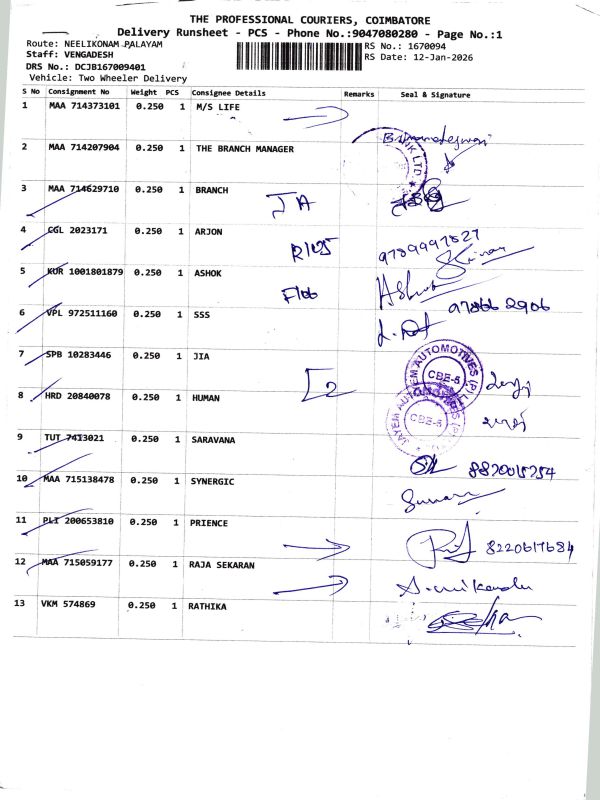 THE PROFESSIONAL COURIERS, COIMBATORE
Delivery Runsheet - PCS - Phone No.:9047080280 - Page No.:1
Route: NEELIKONAM PALAYAM
RS No.: 1670094
Staff: VENGADESH
RS Date: 12-Jan-2026
DRS No.: DCJB167009401
Vehicle: Two Wheeler Delivery
S No Consignment No Weight PCS Consignee Details Remarks Seal & Signature
1 MAA 714373101 0.250 1 M/S LIFE
2 MAA 714207904 0.250 1 THE BRANCH MANAGER
3 MAA 714629710 0.250 1 BRANCH
4 CGL 2023171 0.250 1 ARJON
5 KUR 1001801879 0.250 1 ASHOK
Ashok
6 VPL 972511160 0.250 1 SSS
97866 2906
7 SPB 10283446 0.250 1 JIA
JAYEM AUTOMOTIVES (P) L
CBE-5
8 HRD 20840078 0.250 1 HUMAN
JAYEM AUTOMOTIVES (P)
CBE-5
9 TUT 7413021 0.250 1 SARAVANA
10 MAA 715138478 0.250 1 SYNERGIC
11 PLI 200653810 0.250 1 PRIENCE
12 MAA 715059177 0.250 1 RAJA SEKARAN
13 VKM 574869 0.250 1 RATHIKA